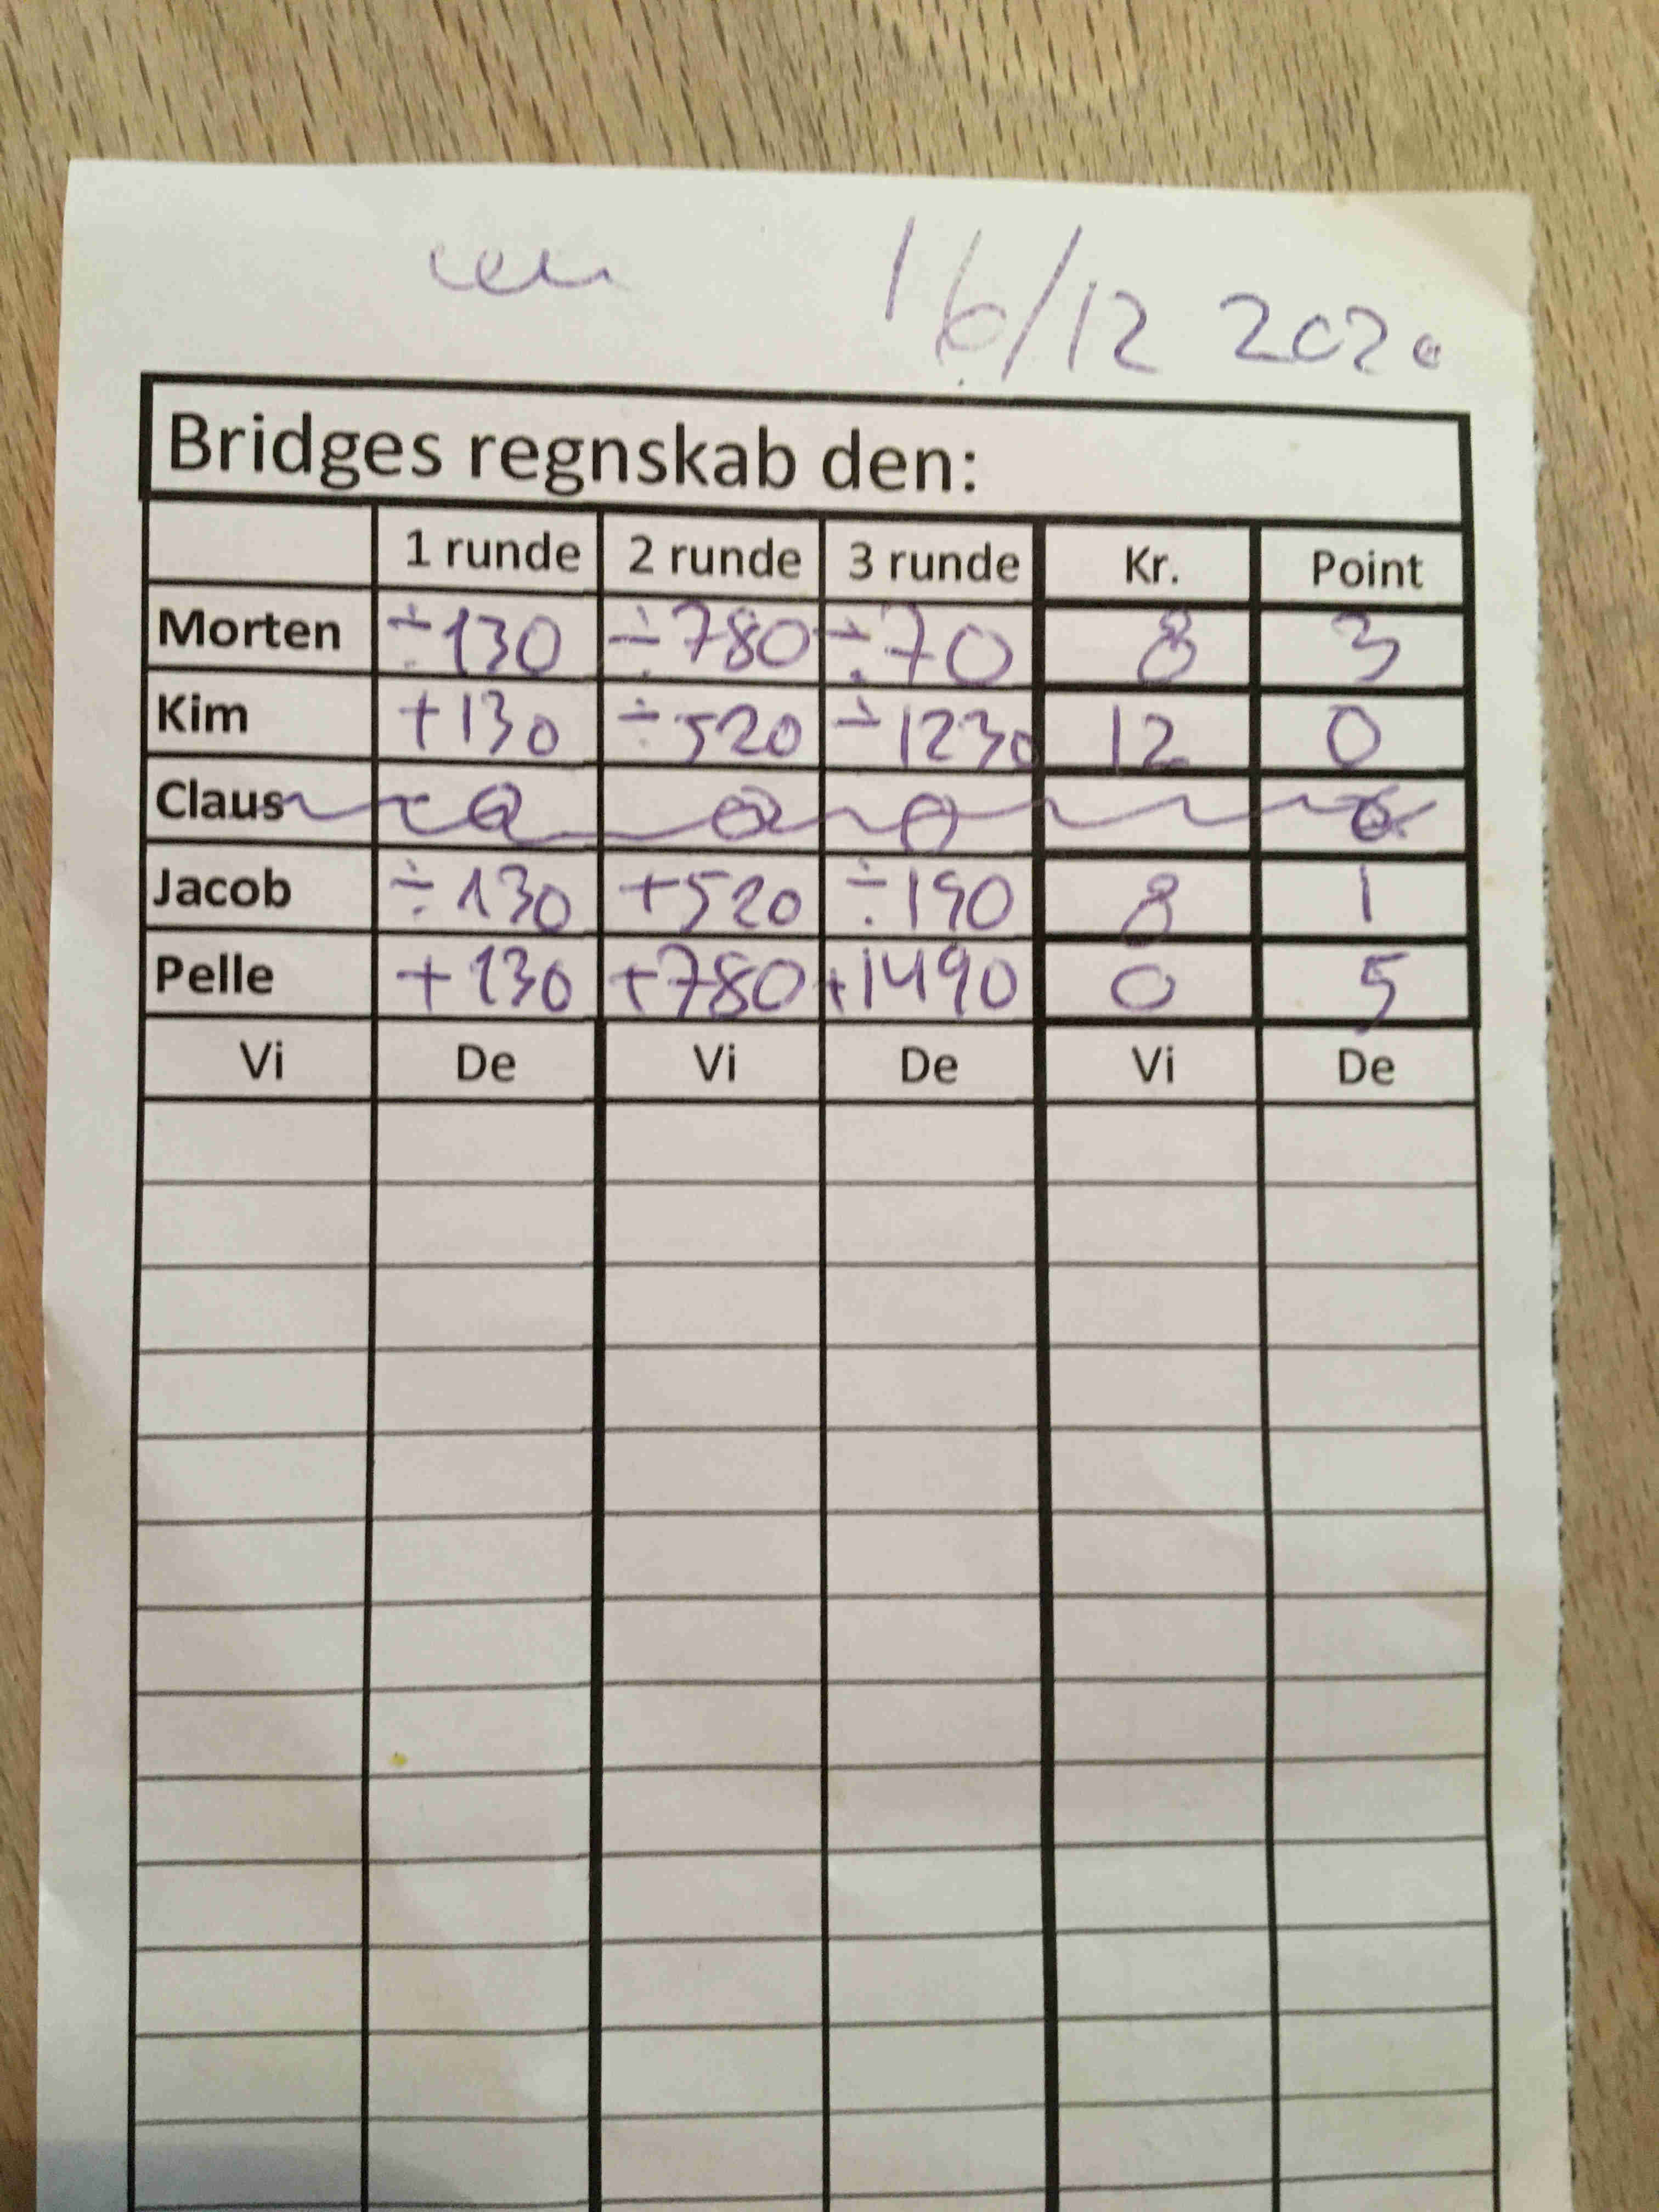 16/12 2020
Bridges regnskab den:
1 runde 2 runde 3 runde Kr. Point
Morten ÷130 ÷780 ÷70 8 3
Kim +130 ÷520 ÷1230 12 0
Claus 0 0 0 0
Jacob ÷130 +520 ÷190 8 1
Pelle +130 +780 +1490 0 5
Vi De Vi De Vi De